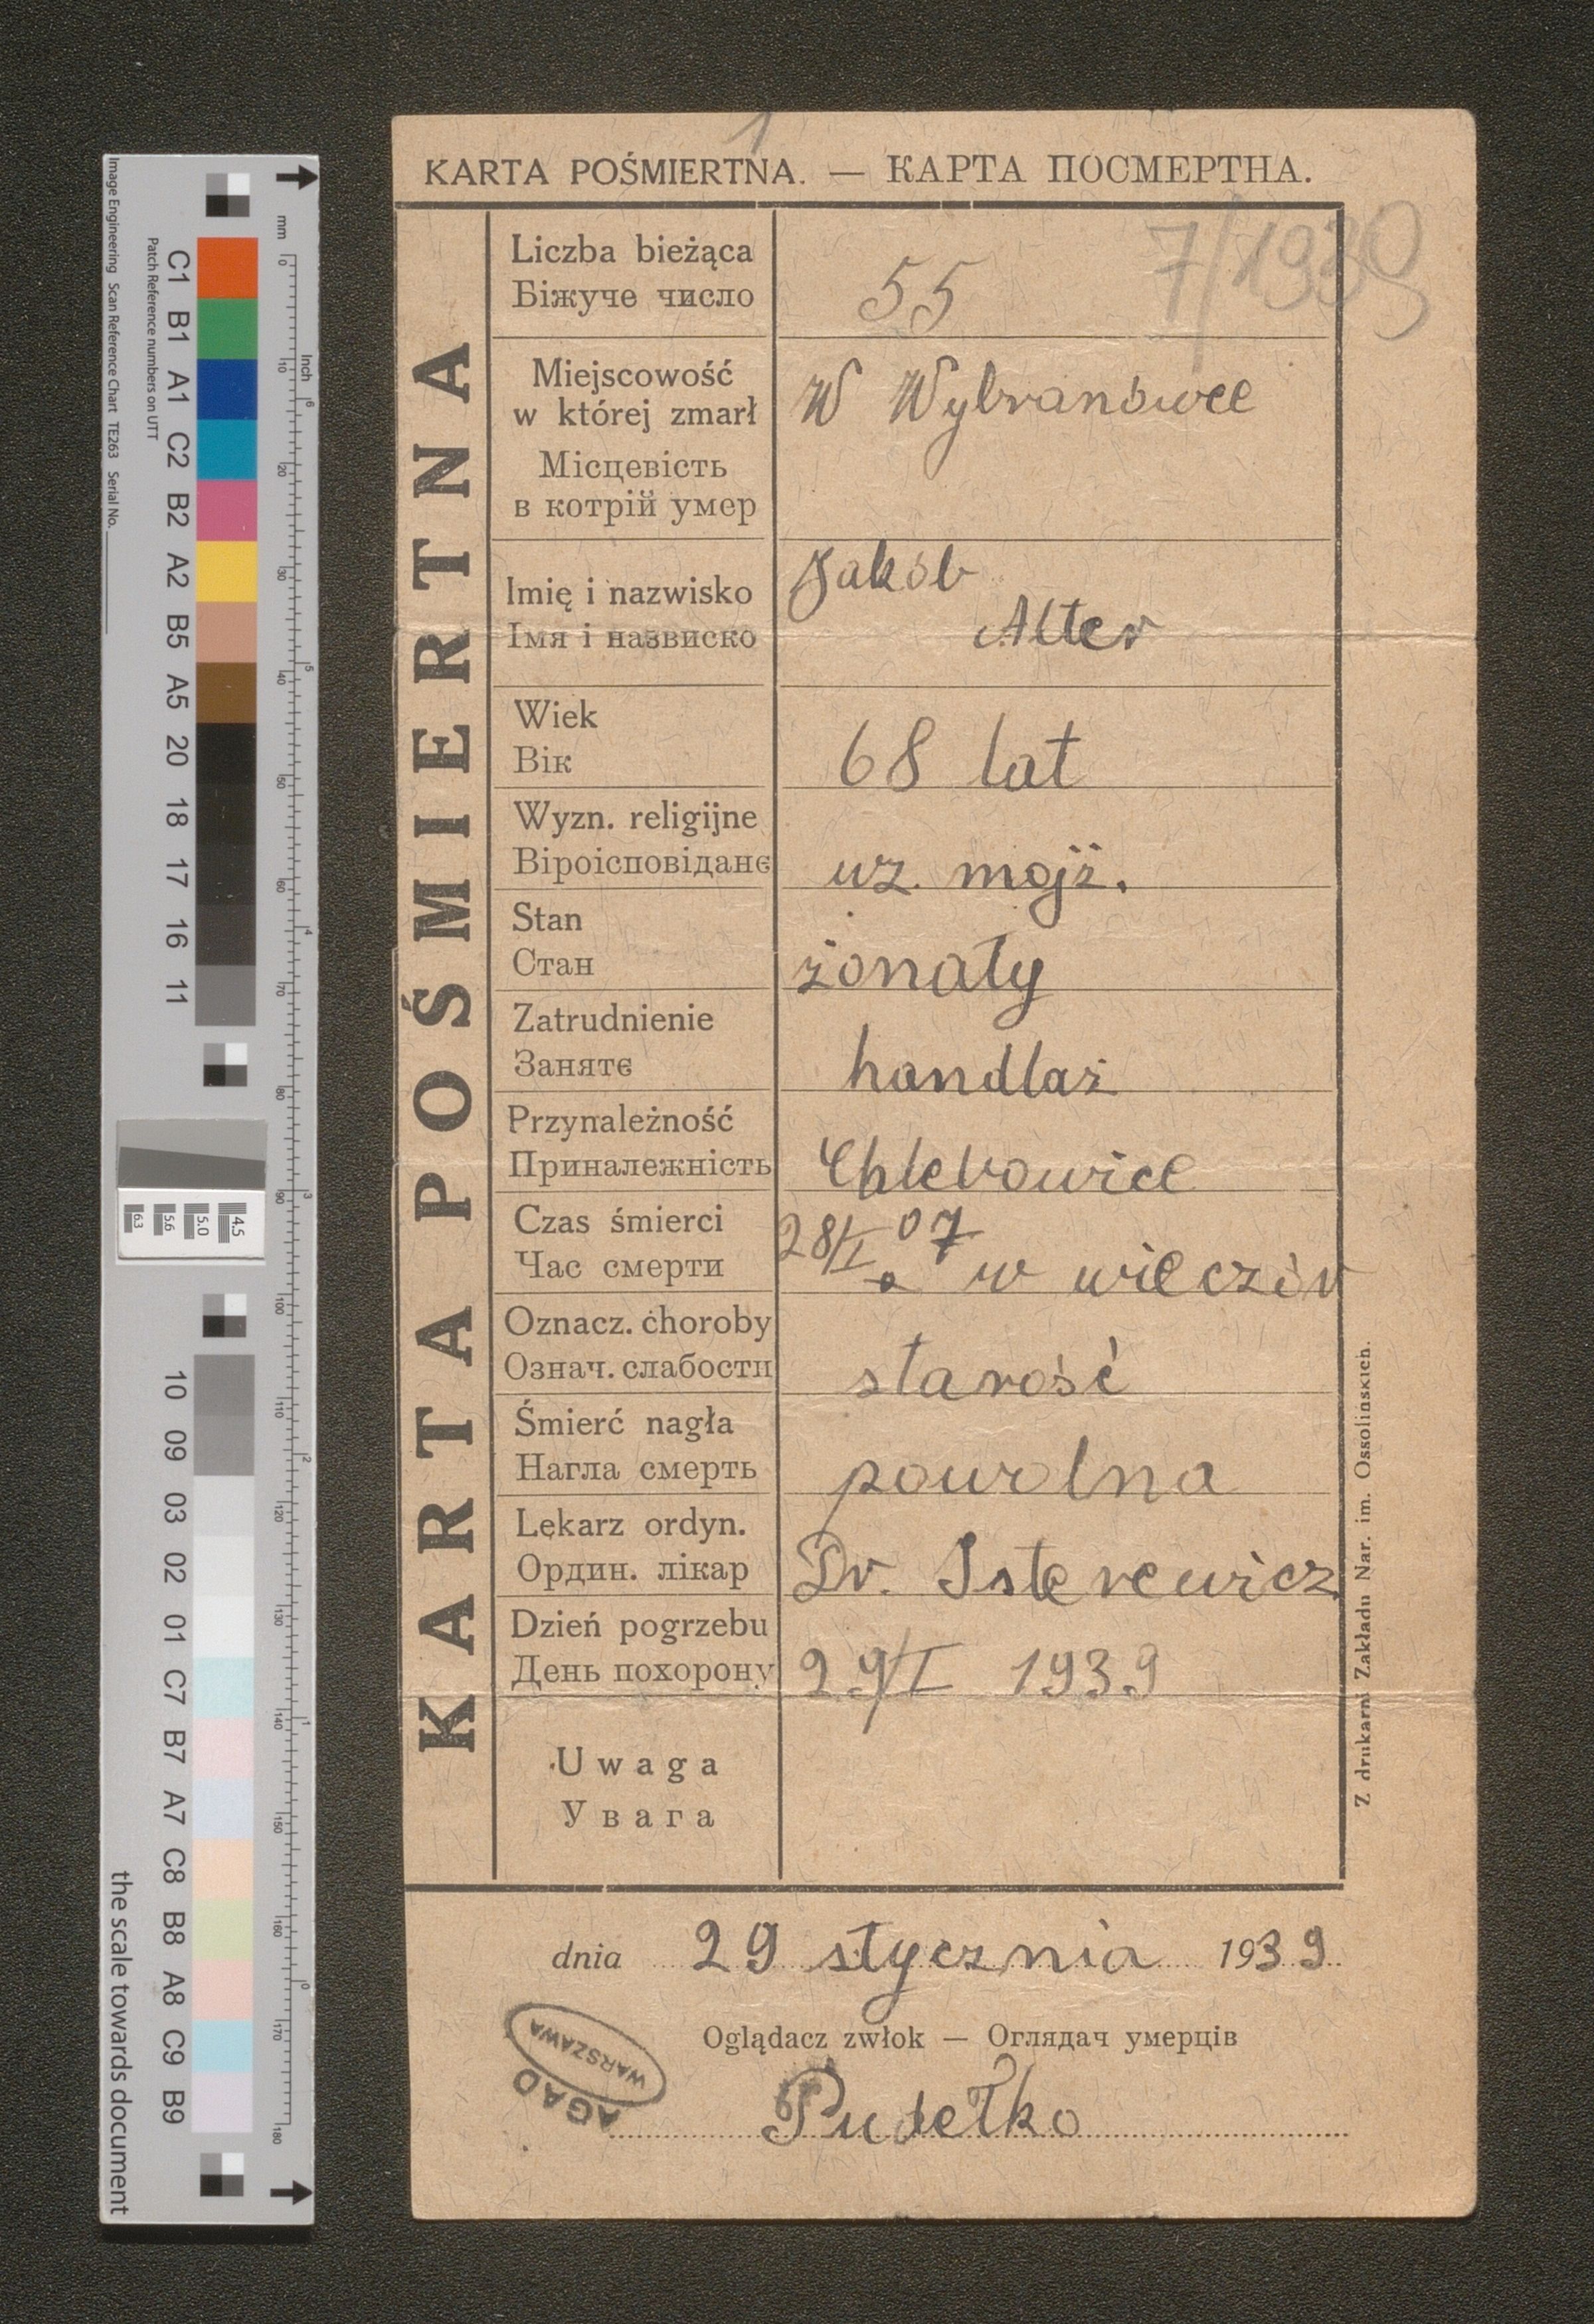 1
KARTA POŚMIERTNA. — КАРТА ПОСМЕРТНА.
7/1939
KARTA POŚMIERTNA
Liczba bieżąca
Біжуче число
55
Miejscowość
w której zmarł
Місцевість
в котрій умер
W Wybranówce
Imię i nazwisko
Імя і назвиско
Jakób
Alter
Wiek
Вік
68 lat
Wyzn. religijne
Віроісповіданє
wz. mojż.
Stan
Стан
żonaty
Zatrudnienie
Занятє
handlaż
Przynależność
Приналежність
Chlebowice
Czas śmierci
Час смерти
28/I o 07
w wieczór
Oznacz. choroby
Означ. слабости
starość
Śmierć nagła
Нагла смерть
powolna
Lekarz ordyn.
Ордин. лікар
Dr. Isterewicz
Dzień pogrzebu
День похорону
29/I 1939
Uwaga
Увага
Z drukarni Zakładu Nar. im. Ossolińskich.
dnia 29 stycznia 1939.
Oglądacz zwłok — Оглядач умерців
Pudełko
AGAD
WARSZAWA
Image Engineering Scan Reference Chart TE263 Serial No.
Patch Reference numbers on UTT
C1 B1 A1 C2 B2 A2 B5 A5 20 18 17 16 11
10 09 03 02 01 C7 B7 A7 C8 B8 A8 C9 B9
mm 0 10 20 30 40 50 60 70 80 90 100 110 120 130 140 150 160 170 180
Inch 6 5 4 3 2 1 0
6.3 5.6 5.0 4.5
the scale towards document